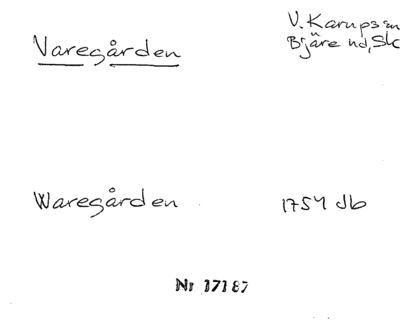 Varegården
V. Karups sn
Bjäre hd, Sk
Waregården
1754 db
Nr 17187